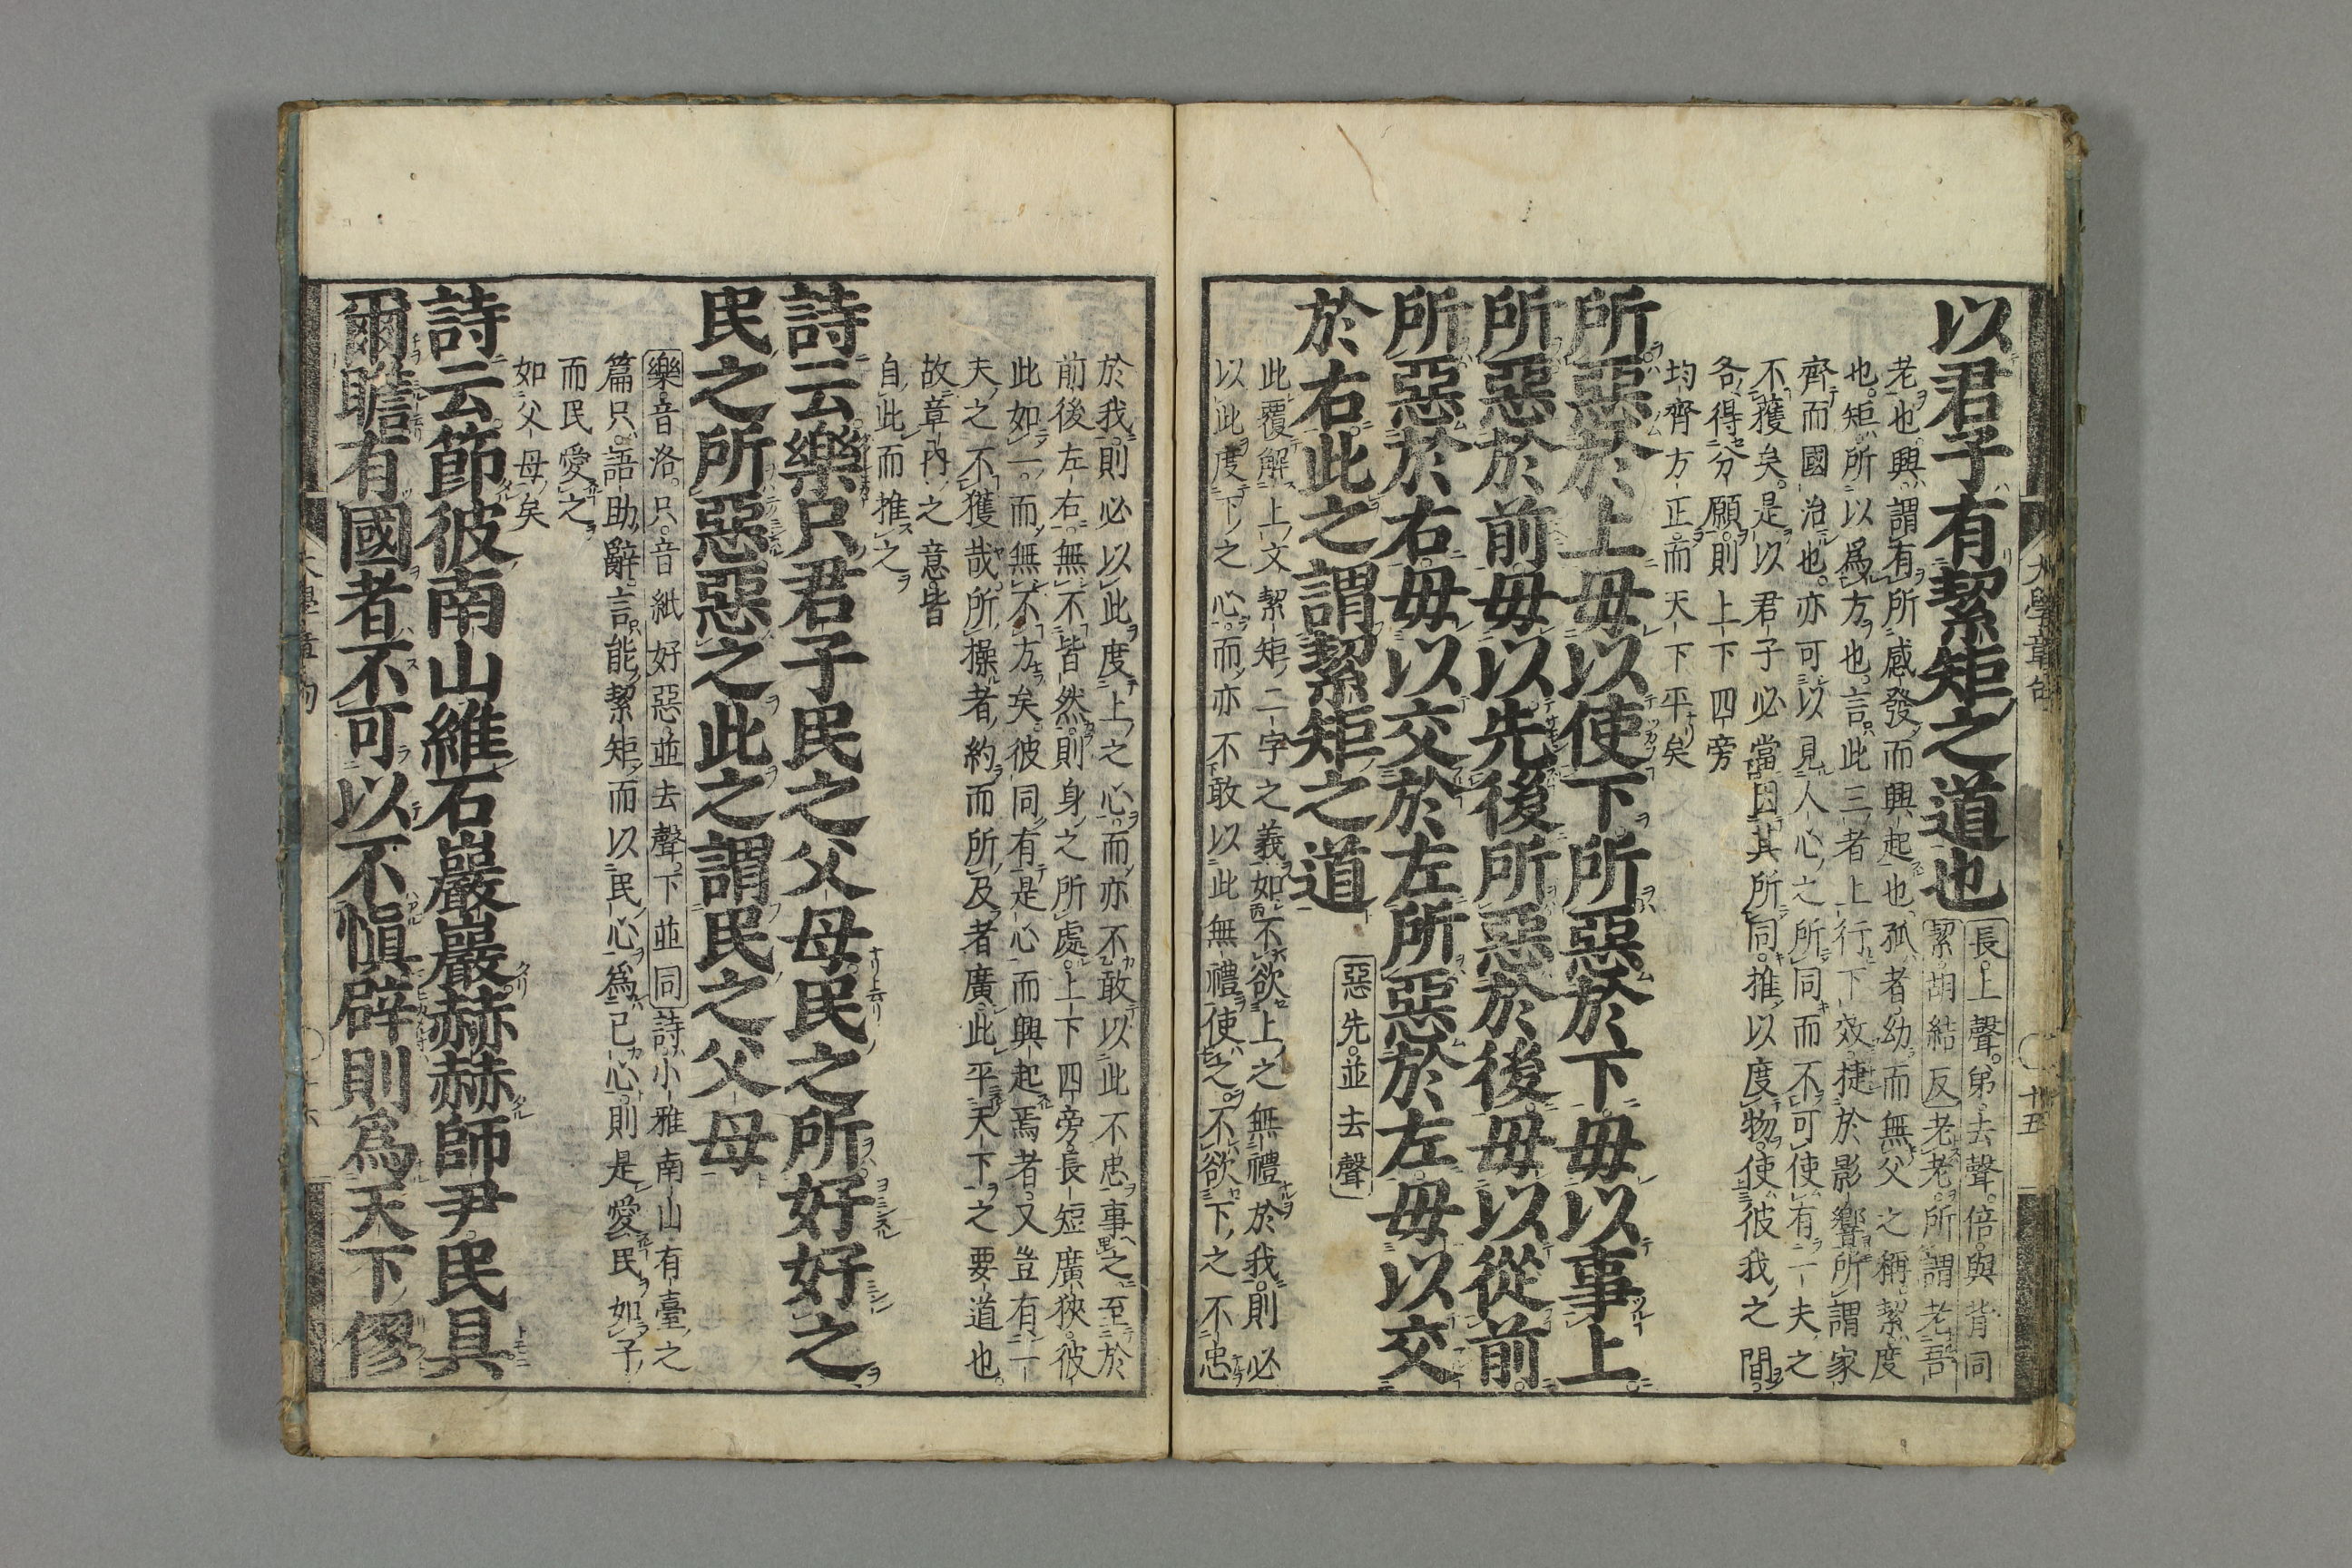 以君子有絜矩之道也
長上聲弟去聲倍與背同
絜胡結反老老所謂老吾
老也興謂有所感發而興起也孤者幼而無父之稱絜度
也矩所以爲方也言此三者上行下效捷於影響所謂家
齊而國治也亦可以見人心之所同而不可使有一夫之
不獲矣是以君子必當因其所同推以度物使彼我之間
各得分願則上下四旁
均齊方正而天下平矣
所惡於上毋以使下所惡於下毋以事上
所惡於前毋以先後所惡於後毋以從前
所惡於右毋以交於左所惡於左毋以交
於右此之謂絜矩之道
惡先並去聲
此覆解上文絜矩二字之義如不欲上之無禮於我則必
以此度下之心而亦不敢以此無禮使之不欲下之不忠
於我則必以此度上之心而亦不敢以此不忠事之至於
前後左右無不皆然則身之所處上下四旁長短廣狹彼
此如一而無不方矣彼同有是心而興起焉者又豈有一
夫之不獲哉所操者約而所及者廣此平天下之要道也
故章內之意皆
自此而推之
詩云樂只君子民之父母民之所好好之
民之所惡惡之此之謂民之父母
樂音洛只音紙好惡並去聲下並同詩小雅南山有臺之
篇只語助辭言能絜矩而以民心爲己心則是愛民如子
而民愛之
如父母矣
詩云節彼南山維石巖巖赫赫師尹民具
爾瞻有國者不可以不愼辟則爲天下僇
大學章句
十五